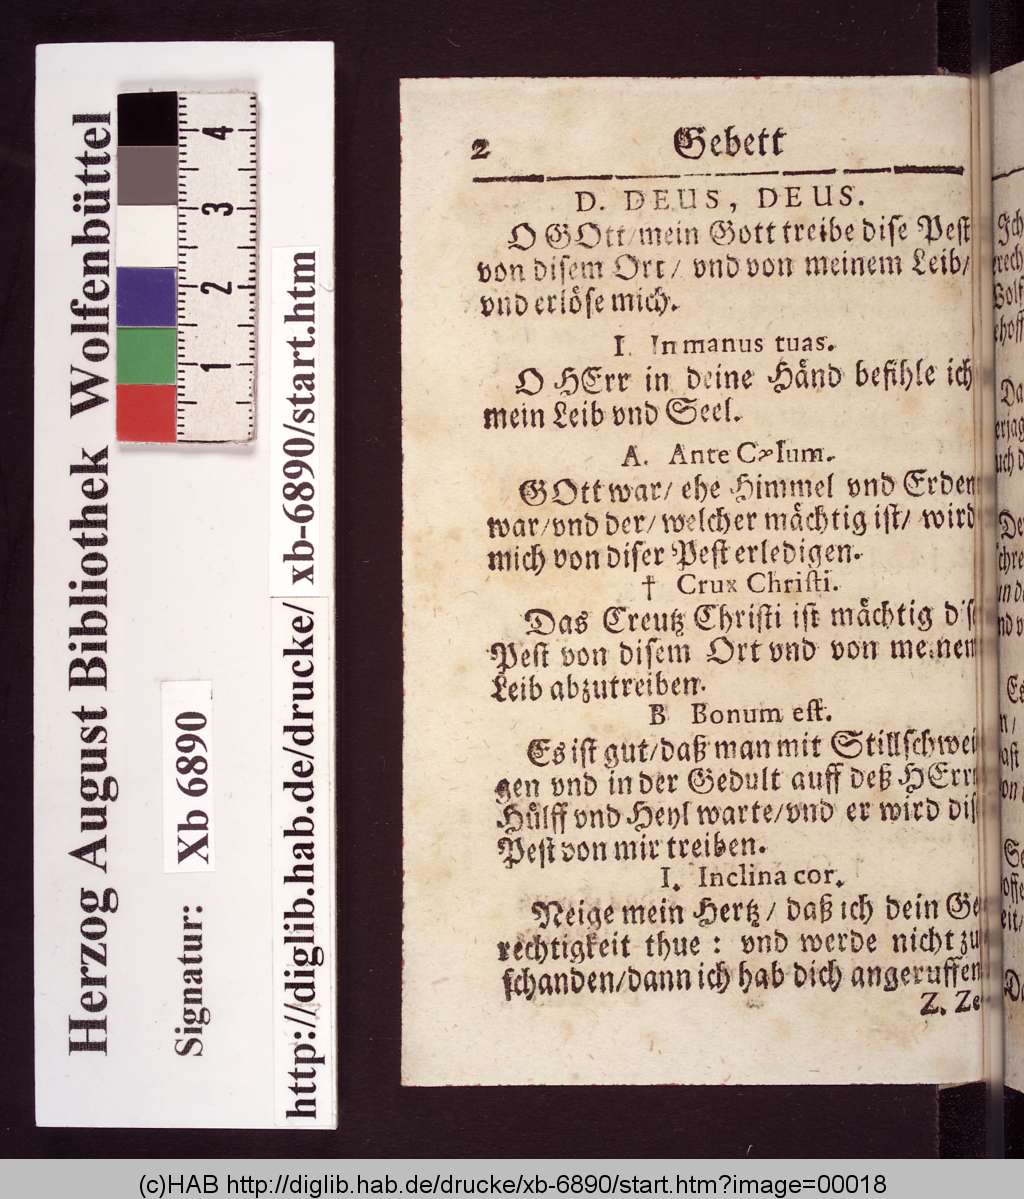 Herzog August Bibliothek Wolfenbüttel
Signatur: Xb 6890
http://diglib.hab.de/drucke/ xb-6890/start.htm
4
3
2
1
2 Gebett
D. DEUS, DEUS.
O GOtt/mein Gott treibe dise Pest
von disem Ort/ vnd von meinem Leib/
vnd erlöse mich.
I. In manus tuas.
O HErr in deine Händ befihle ich
mein Leib vnd Seel.
A. Ante Cælum.
GOtt war/ ehe Himmel vnd Erden
war/vnd der/ welcher mächtig ist/ wird
mich von diser Pest erledigen.
† Crux Christi.
Das Creutz Christi ist mächtig dise
Pest von disem Ort vnd von meinem
Leib abzutreiben.
B Bonum est.
Es ist gut/daß man mit Stillschwei
gen vnd in der Gedult auff deß HErrn
Hülff vnd Heyl warte/vnd er wird dise
Pest von mir treiben.
I. Inclina cor.
Neige mein Hertz/ daß ich dein Ge
rechtigkeit thue: vnd werde nicht zu
schanden/dann ich hab dich angeruffen
Z. Ze
(c)HAB http://diglib.hab.de/drucke/xb-6890/start.htm?image=00018